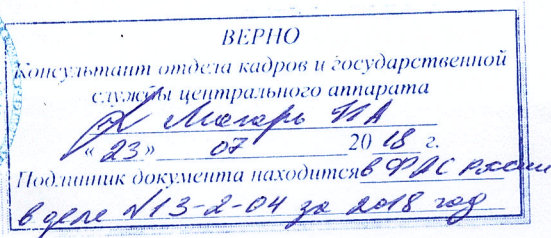 ВЕРНО
Консультант отдела кадров и государственной
службы центрального аппарата
Могарь И А
«23» 07 2018 г.
Подлинник документа находится в ФАС России
в деле №13-2-04 за 2018 год